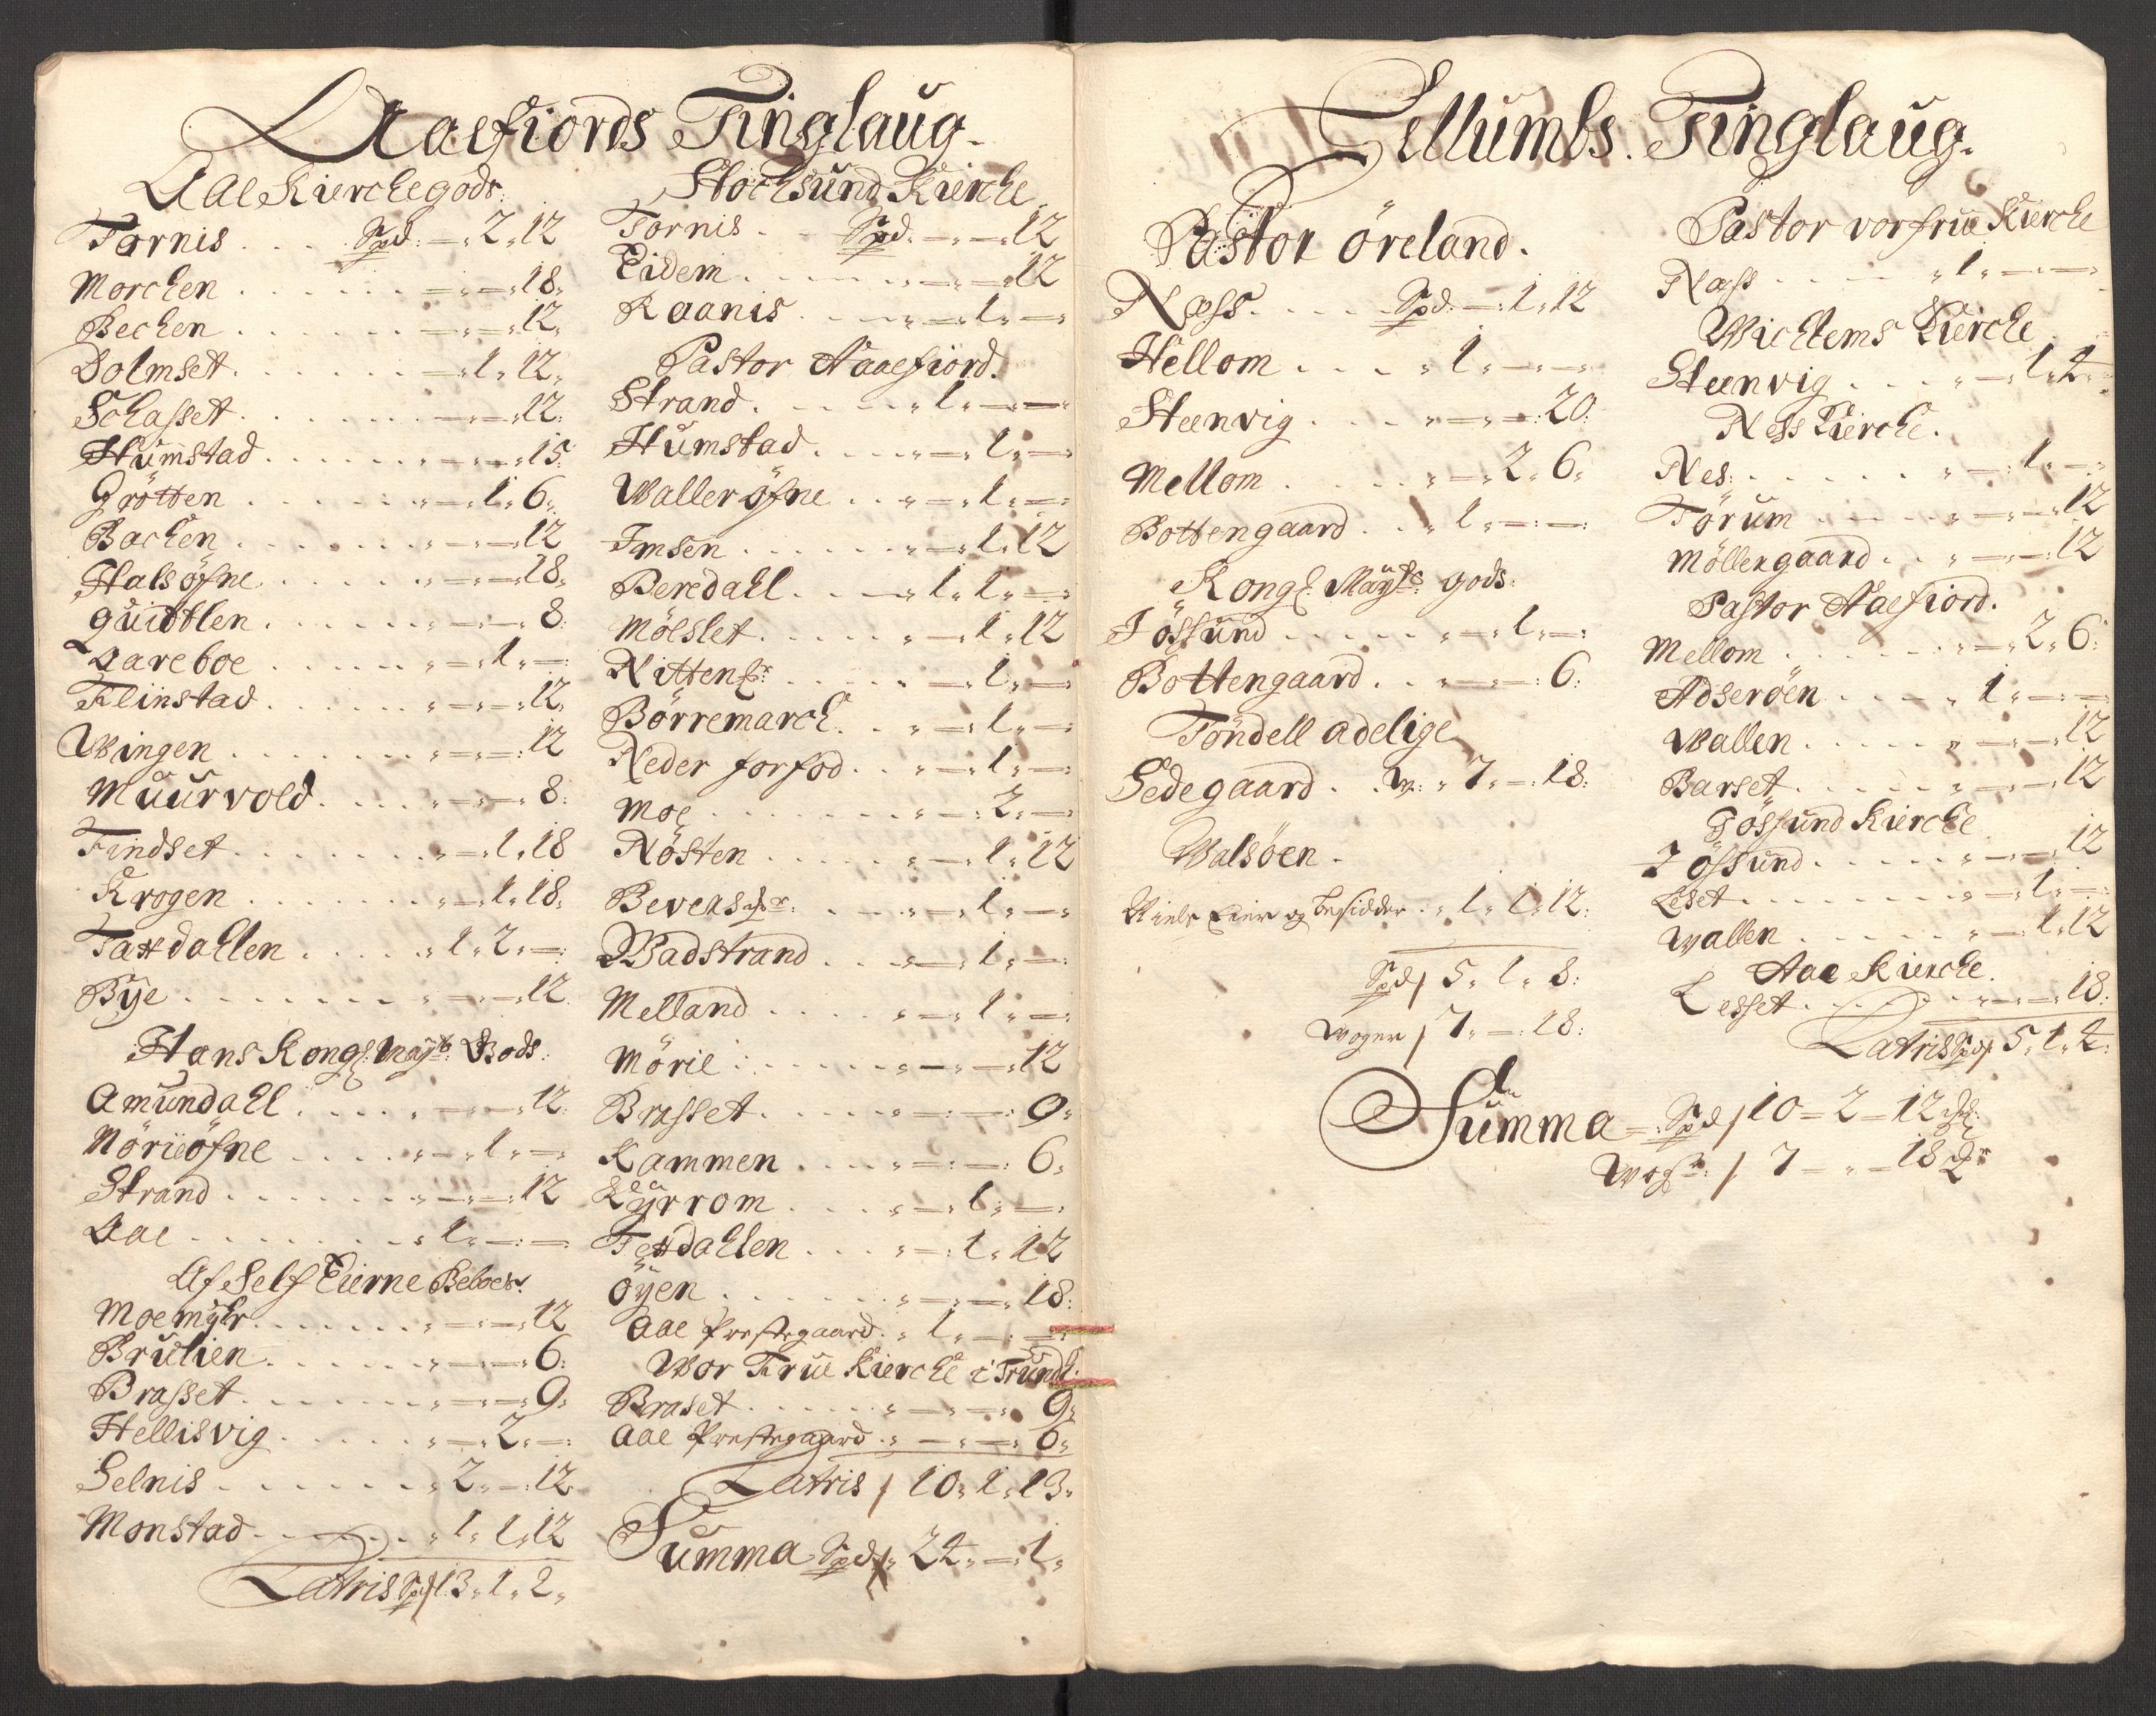 Aaefiords Tinglaug.
Aae Kierchegods:
Tørnis . . . Spd: —„ 2„ 12
Morchen . . . . . . —„—„ 18„
Bechen . . . . . . —„—„ 12„
Dolmset . . . . . . —„ 1„ 12„
Schasset . . . . . . —„—„ 12:
Humstad . . . . . . „—„—„ 15:
Grötten . . . . . . „—„ 1„ 6„
Bachen . . . . . . „—„—„ 12
Halsöfne . . . . . . „—„—„ 18„
quitblen . . . . . . „—„—„ 8:
Lareboe . . . . . . „—„ 1„ —:
Flinstad . . . . . . „—„—„ 12„
Wingen . . . . . . „—„—: 12
Muurvold . . . . . „—„—„ 8:
Findset . . . . . . „—„ 1„ 18
Krogen . . . . . . „—„ 1„ 18„
Taxdahlen . . . . . „ 1„ 2„ —:
Bye . . . . . . „—„—„ 12
Hans Kongl: Mayts: Gods:
Amundahl . . . . „—„—„ 12:
Möriöfne . . . . „—„ 1„ —„
Strand . . . . . . „—„—„ 12
Aae . . . . . . „ 1„ —:—
Af Self Eierne Beboes:
Moemyhr . . . . . . „—„—„ 12
Brulien . . . . . . „—„—„ 6:
Brasset . . . . . . „—„—„ 9„
Hellisvig . . . . . „—„ 2„ —:
Selnis . . . . . . „ 2„ —„ 12„
Monstad . . . . . „ 1„ 1„ 12
Latris Spd/ 13„ 1„ 2„
Stochsund Kierche
Tørnis . . Spd. —„ —„ 12
Eidem . . . . . . „—„—„ 12
Raanis . . . . „—„ 1„ —
Pastor Aaaefiord.
Strand . . . . . „ 1„ —„—
Humstad . . . . „—„ 1„ —
Walleröfne . . „—„ 1„ —:
Imsen . . . . . . „—„ 1„ 12
Beredahl . . . —„ 1„ 1„ —
Mölslet . . . . . „—„ 1„ 12
Nittenhr . . . . . —„ 1„ —
Börremarch . . „—„ 1„ —:
Neder forfod . . „—„ 1„ —:
Moe . . . . . . „—„ 2„ —
Nösten . . . . . „—„ 1„ 12
Badstrand . . . „—„ 1„ —:
Melland . . . . „—„ 1„ —:
Mörie . . . . . . „—„—„ 12
Brasset . . . . . „—:—: 9:
Kammen . . . . „—:—: 6„
Kyrrom . . . . „—„ 1„ —:
Texdahlen . . . „—: 1„ 12
öyen . . . . . . „—„—„ 18:
Aae Prestegaard . „ 1„ —„ —:
Wor Frue Kierche i Trundh:
Braset . . . . . „—„—„ 9„
Aae Prestegaard . „—„—„ 6„
Latris / 10„ 1„ 23„
Summa Spd/ 24„ —„ 1„
Tellumbs Tinglaug.
Pastor öreland.
Næss . . . . . Spd. —: 1„ 12
Hellom . . . . „ 1„ —„—
Steenvig . . . . „—„—„ 20:
Mellom . . . . . „—„ 2„ 6„
Bottengaard . . „ 1„ —:—:
Kongl: Mayts: gods:
Jössund . . . . . „—„ 1„ —:
Bottengaard . . „—„—: 6:
Töndell adelige
Sedegaard . . W: „ 7„ —: 18:
Walsöen .
Niels Eier og besidder . „ 1„ 1„ 12:
Spd/ 5„ 1„ 8:
Woger / 7„ —: 18:
Pastor vorfrue Kierche
Næss . . . . „ 1„ —„—
Wichlems Kierche
Steenvig . . . „—„ 1„ 4„
Ness Kierche.
Nes . . . . . . „—: 1„ —„
Törum . . . . . „—„—„ 12
Möllergaard . . „—„—: 12
Pastor Aaefiord.
Mellom . . . . . . „—„ 2„ 6:
Adseröen . . . . „ 1„ —:—
Wallen . . . . . „—„—„ 12
Barset . . . . . „—„—„ 12
Jössund Kierche
Jössund . . . . . „—„—„ 12
Leset . . . . . . „—„ 1„ —:
Wallen . . . . . „—„ 1„ 12
Aae Kierche.
Lesset . . . . . „—„—„ 18:
Latris Spd/ 5„ 1„ 4:
Summa —: Spd/ 10 — 2 — 12
Wogr: / 7 — „ — 18